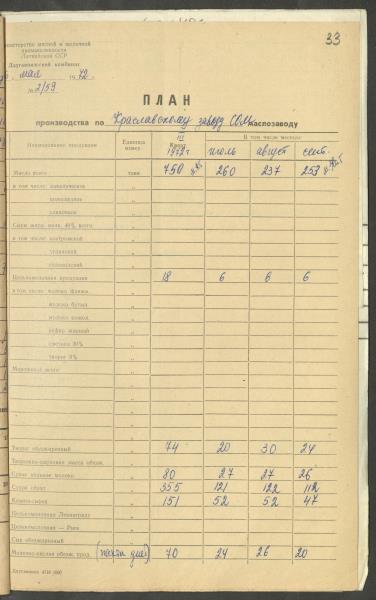 33
Министерство мясной и молочной
промышленности
Латвийской ССР
Даугавпилсский комбинат
мая 1972 г.
№ 2/59
ПЛАН
производства по Краславскому заводу СОМ маслозаводу
Наименование продукции Единица измер. III Квар. 1972 г. В том числе месяцы
июль август сент.
Масло всего тонн 750 260 237 253
в том числе: вологодское „
шоколадное „
сливочное „
в том числе: костромской „
угличский „
Цельномолочная продукция „ 18 6 6 6
в том числе: молоко фляжн. „
молоко бутыл. „
кефир жирный „
сметана 30% „
творог 9% „
Мороженое всего „
Творог обезжиренный „ 74 20 30 24
Творожно-сырковая масса обезж. „
Сухое цельное молоко „ 80 27 27 26
Сухой обрат „ 355 121 122 112
Казеин-сырец „ 151 52 52 47
Цельномолочная Ленинграду „
Цельномолочная — Рига „
Сыр обезжиренный „
Молочно-кислая обезж. прод. „ 70 24 26 20